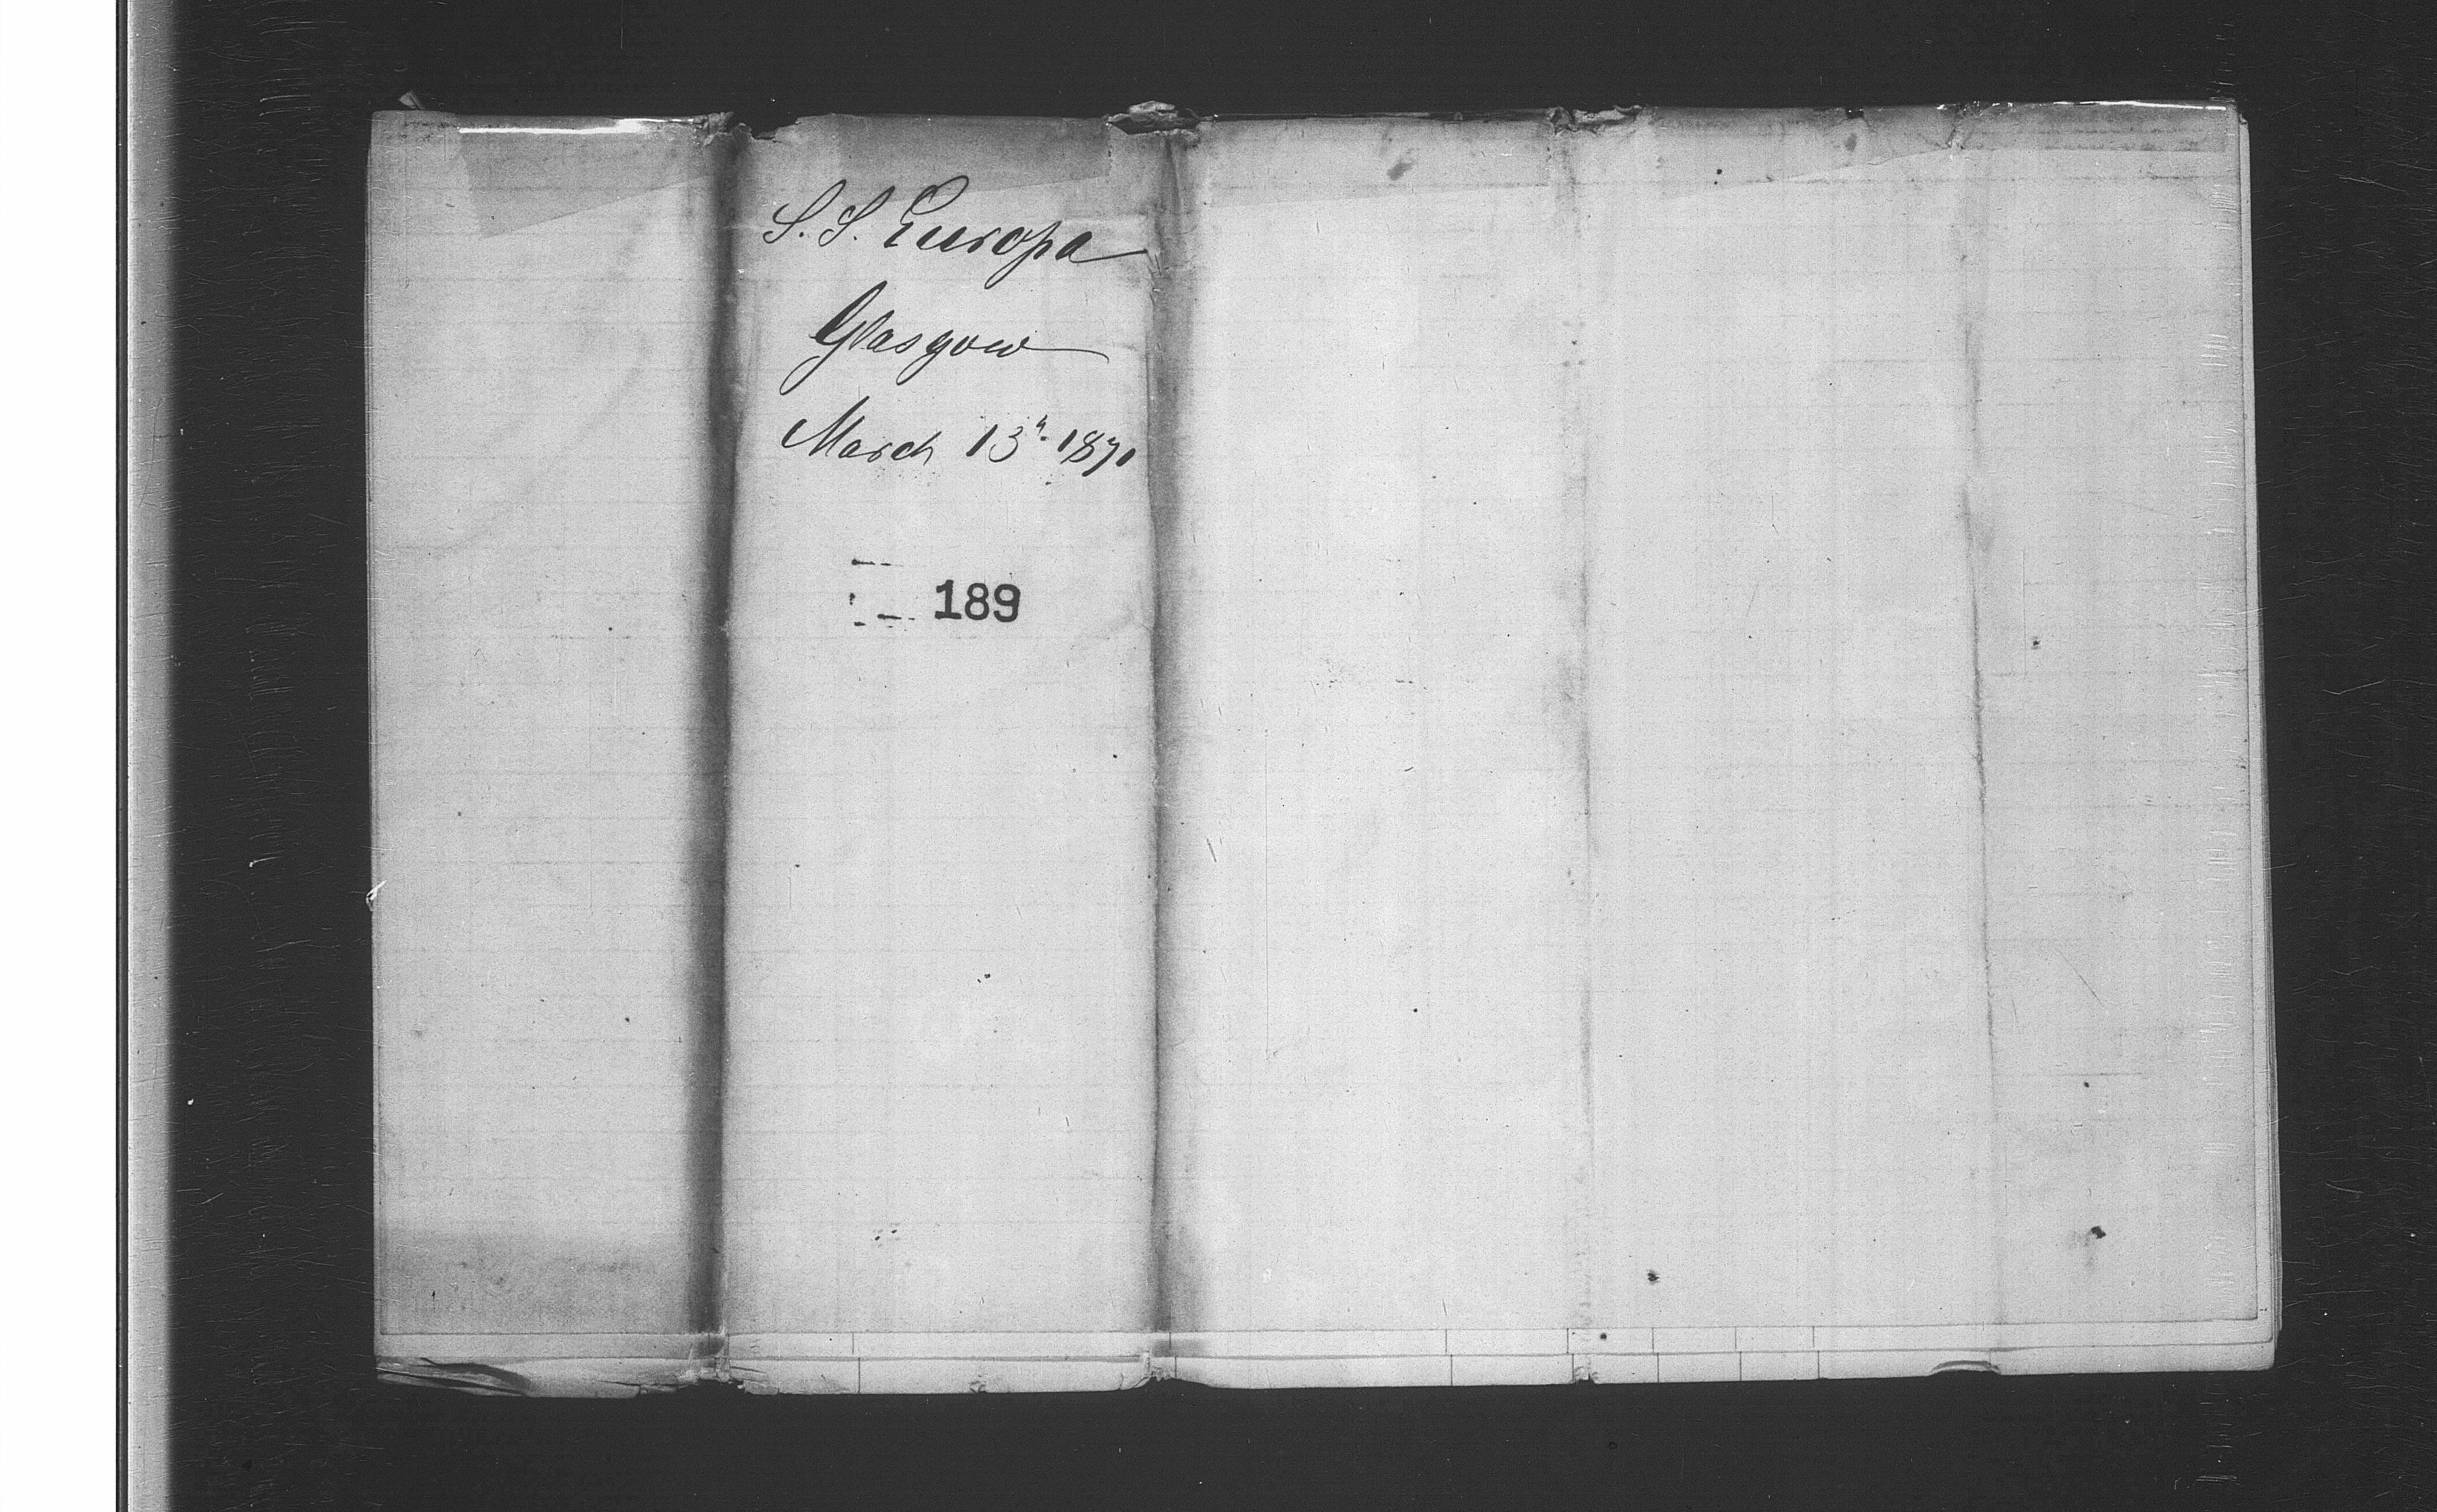 S. S. Europa
Glasgow
March 13th 1871
189